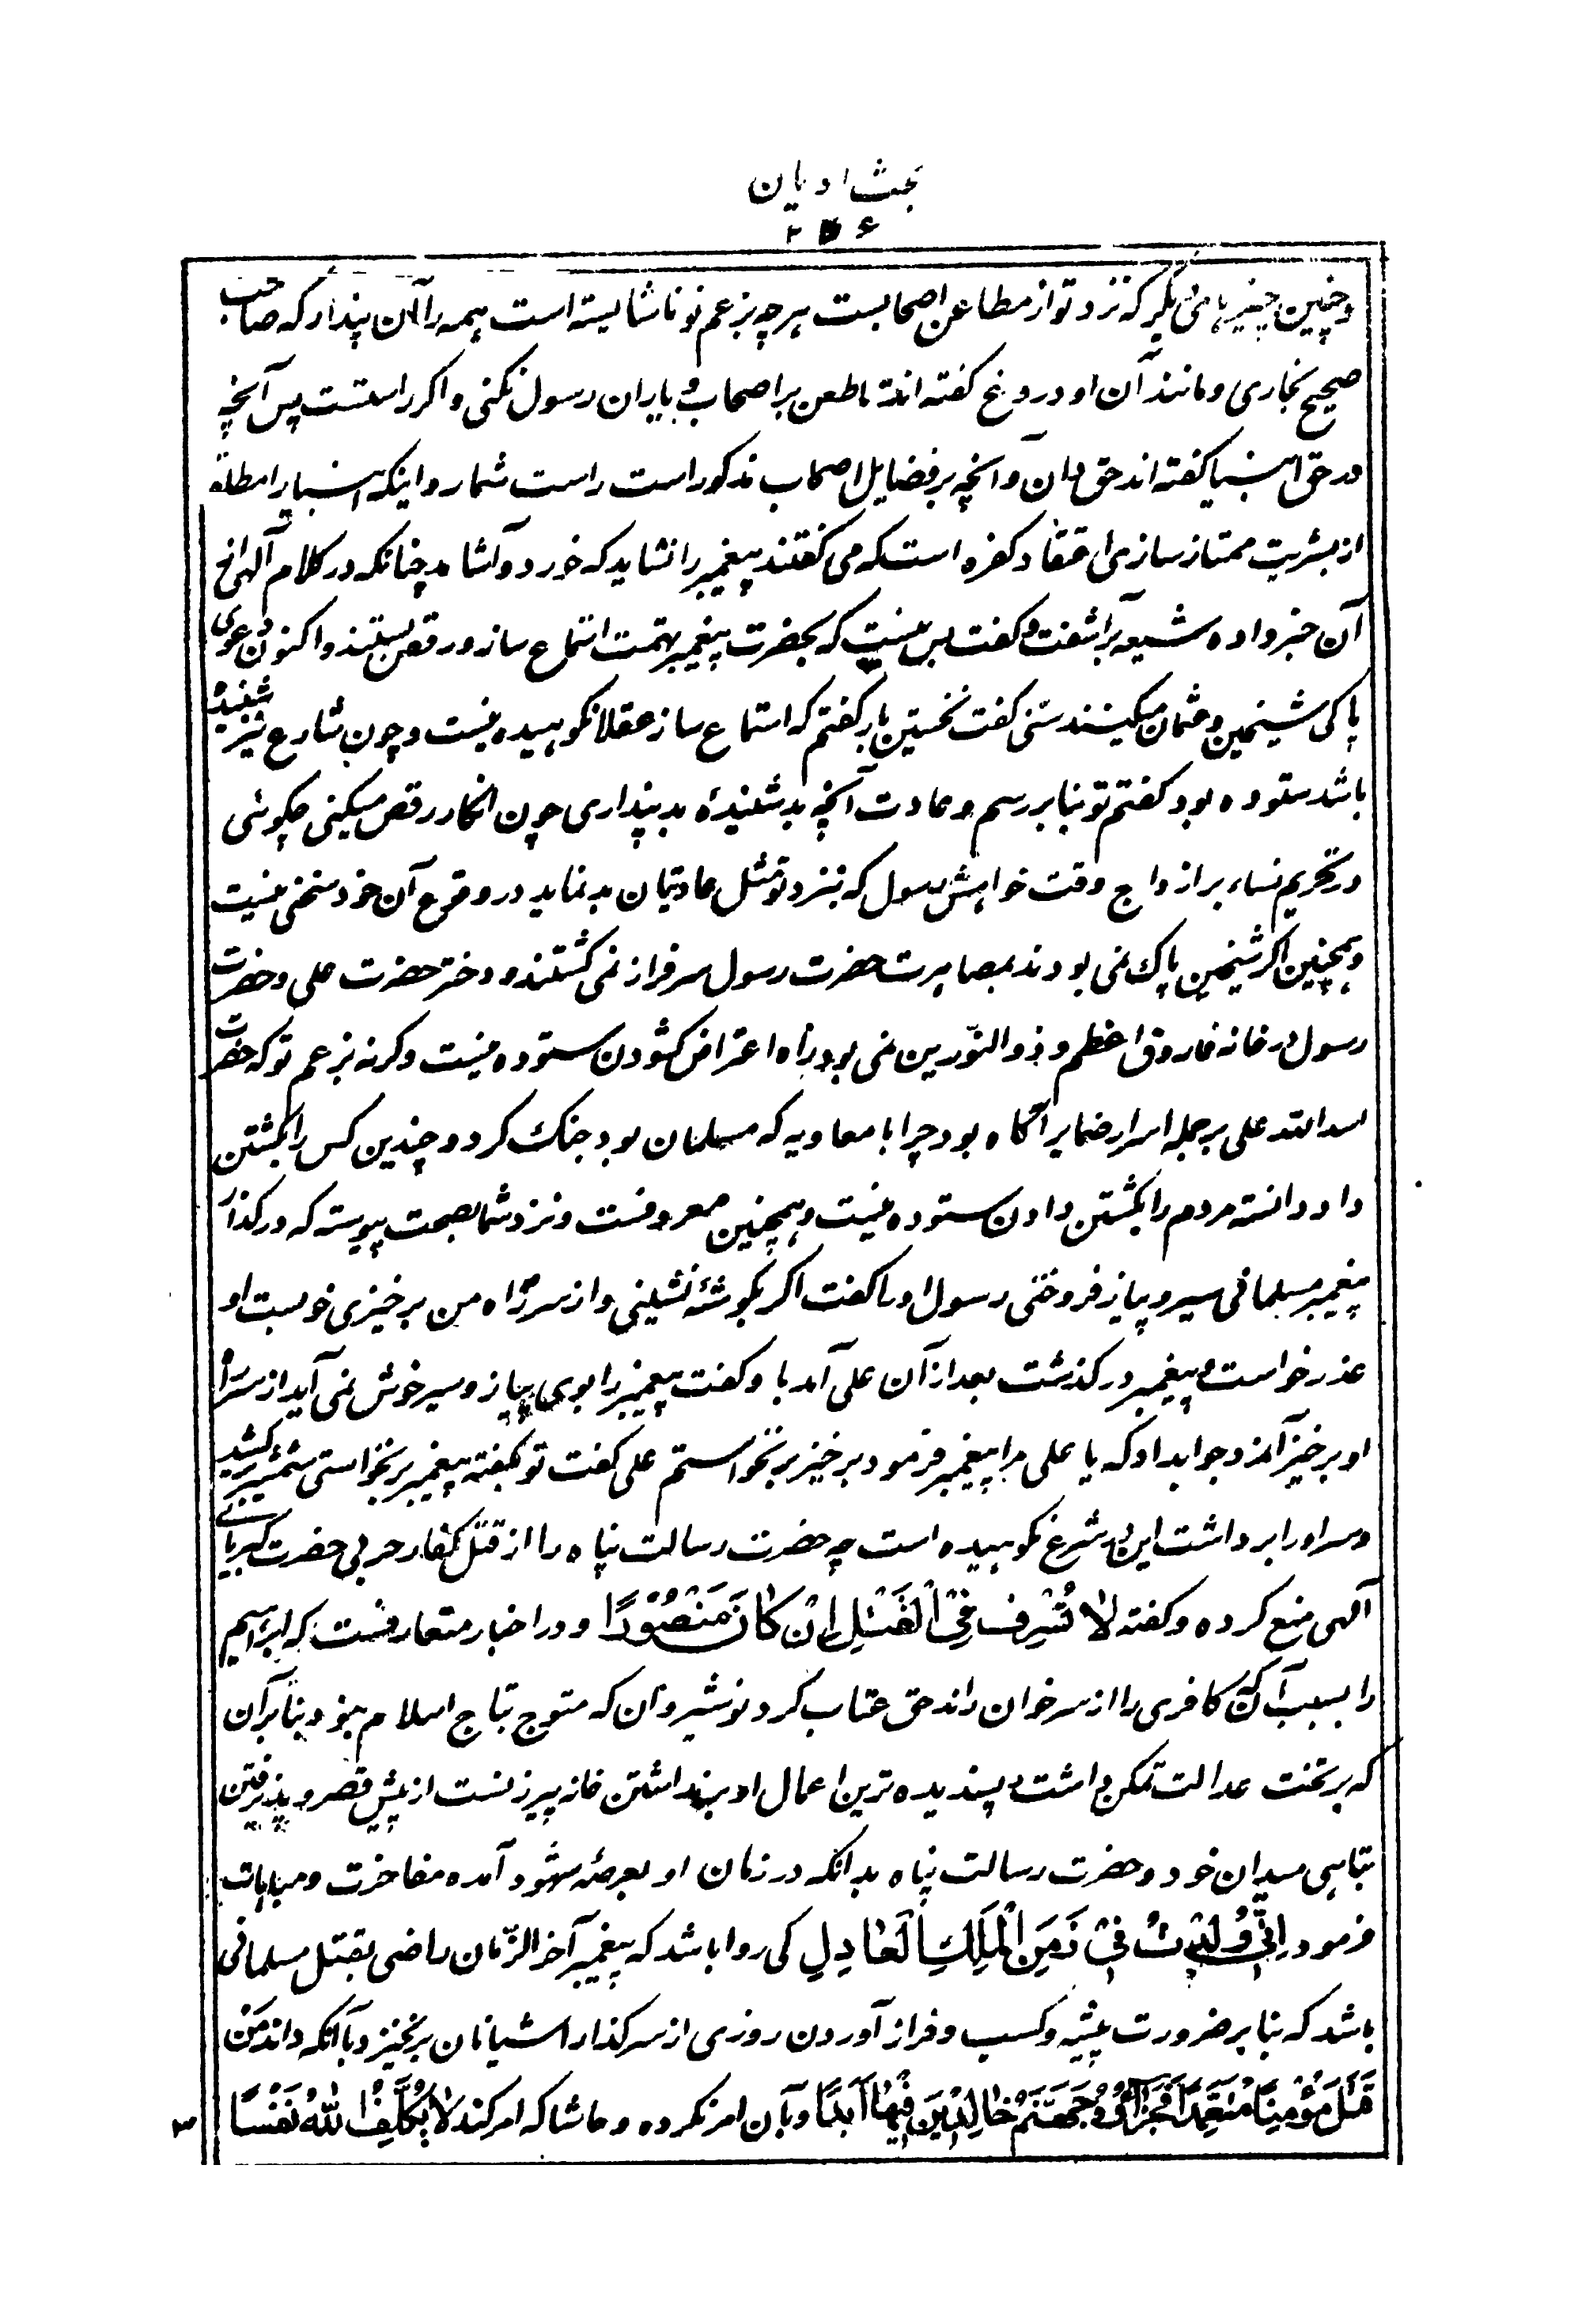 بحث ادیان
۲۵۶
و چنین چیزها می‌گیر که نزد تو از مطاعن اصحابست هرچه بزعم تو ناشایسته است همه را آن پندار که صاحب
صحیح بخاری و مانند آن او دروغ گفته‌اند تا طعن بر اصحاب و یاران رسول نکنی و اگر راستست پس آنچه
در حق انبیا گفته‌اند حق دان و آنچه بر فضایل اصحاب مذکور است راست شمار و اینکه انبیا را مطلق
از بشریت ممتاز سازی اعتقاد کفره است که می گفتند پیغمبر را نشاید که خورد و آشامد چنانکه در کلام آلهی از
آن خبر داده شیعه بر آشفت و گفت بس نیست که بحضرت پیغمبر تهمت استماع ساز و رقص بستند و اکنون دعوی
پاکی شیخین و عثمان میکنند سنی گفت نخستین بار گفتم که استماع ساز عقلا نکوهیده نیست و چون شارع نیز شنیده
باشد ستوده بود گفتم تو بنابر رسم و عادت آنچه بد شنیدۀ بد پنداری چون انکار رقص میکنی چگوئی
در تحریم نساء بر ازواج وقت خواهش رسول که نزد تو مثل عادتیان بد نماید در وقوع آن خود سخنی نیست
و همچنین اگر شیخین پاک نمی بودند بمصاهرت حضرت رسول سرفراز نمی گشتند و دختر حضرت علی و حضرت
رسول در خانه فاروق اعظم و ذوالنّورین نمی بود براه اعتراض گشودن ستوده نیست وگرنه بزعم تو که حضرت
اسد الله علی بر جمله اسرار ضمایر آگاه بود چرا با معاویه که مسلمان بود جنگ کرد و چندین کس را بکشتن
داد دانسته مردم را بکشتن دادن ستوده نیست و همچنین معروفست و نزد شما بصحت پیوسته که در گذار
پیغمبر مسلمانی سیر و پیاز فروختی رسول او را گفت اگر بگوشۀ نشینی و از سر راه من برخیزی خوبست او
عذر خواست و پیغمبر درگذشت بعد از آن علی آمد با و گفت پیغمبر را بوی پیاز و سیر خوش نمی آید از سر راه
او برخیز آنمرد جواب داد که یا علی مرا پیغمبر فرمود برخیز برنخواستم علی گفت تو بگفته پیغمبر برنخواستی شمشیر کشید
و سر او را برداشت این در شرع نکوهیده است چه حضرت رسالت پناه را از قتل کفار حربی حضرت کبریائے
آلهی منع کرده و گفته لَا تُسْرِف فِی الْقَتْلِ اِنْ کَانَ مَنْصُوْرًا و در اخبار متعارفست که ابراهیم
را بسبب آن که کافری را از سر خوان راند حق عتاب کرد نوشیروان که متوج بتاج اسلام نبود بنا بر آن
که بر تخت عدالت تمکن داشت و پسندیده ترین اعمال او برنداشتن خانه پیرزنست از پیش قصر و پذیرفتن
تباهی میدان خود و حضرت رسالت پناه بدانکه در زمان او بعرصۀ شهود آمده مفاخرت و مباهات
فرمود اِنِّیْ وُلِدْتُ فِیْ زَمَنِ الْمَلِکِ الْعَادِلِ کی روا باشد که پیغمبر آخر الزّمان راضی بقتل مسلمانی
باشد که بنا بر ضرورت پیشه و کسب و فراز آوردن روزی از سر گذار اشیانان برنخیزد با آنکه داند مَنْ
قَتَلَ مُؤْمِنًا مُتَعَمِّدًا فَجَزَاؤُهُ جَهَنَّمُ خَالِدِیْنَ فِیْهَا اَبَدًا و بآن امر نکرده و حاشا که امر کند لَا یُکَلِّفُ اللّٰهُ نَفْسًا